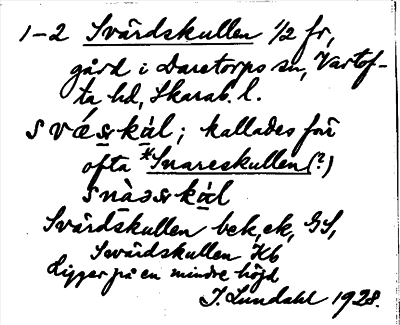 1-2 Svärdskullen 1/2 fr,
gård i Daretorps sn, Vartof-
ta hd, Skarab. l.
kallades förr
ofta *Snareskullen (?)
Svärdskullen bek, ek, GS,
Svärdskullen Kb
Ligger på en mindre höjd
J. Lundahl 1928.